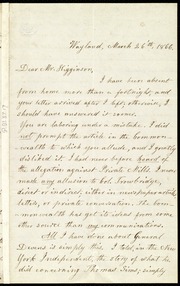 Wayland, March 26th, 1866.
Dear Mr. Higginson,
I have been absent
from home more than a fortnight, and
your letter arrived after I left; otherwise, I
should have answered it sooner.
You are laboring under a mistake. I
did not prompt the article in the Common-
wealth to which you allude, and I greatly
disliked it. I had never before heard of
the allegations against Private Mills. I never
made any allusion to Col. Trowbridge,
direct or indirect, either in newspaper article,
letter, or private conversation. The Com-
monwealth has got its ideas from some
other source than my communications.
All I have done about General
Devens is simply this. I told, in the New
York Independent, the story of what he
did concerning Thomas Sims; simply